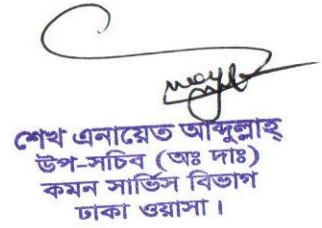 শেখ এনায়েত আব্দুল্লাহ্
উপ-সচিব (অঃ দাঃ)
কমন সার্ভিস বিভাগ
ঢাকা ওয়াসা।